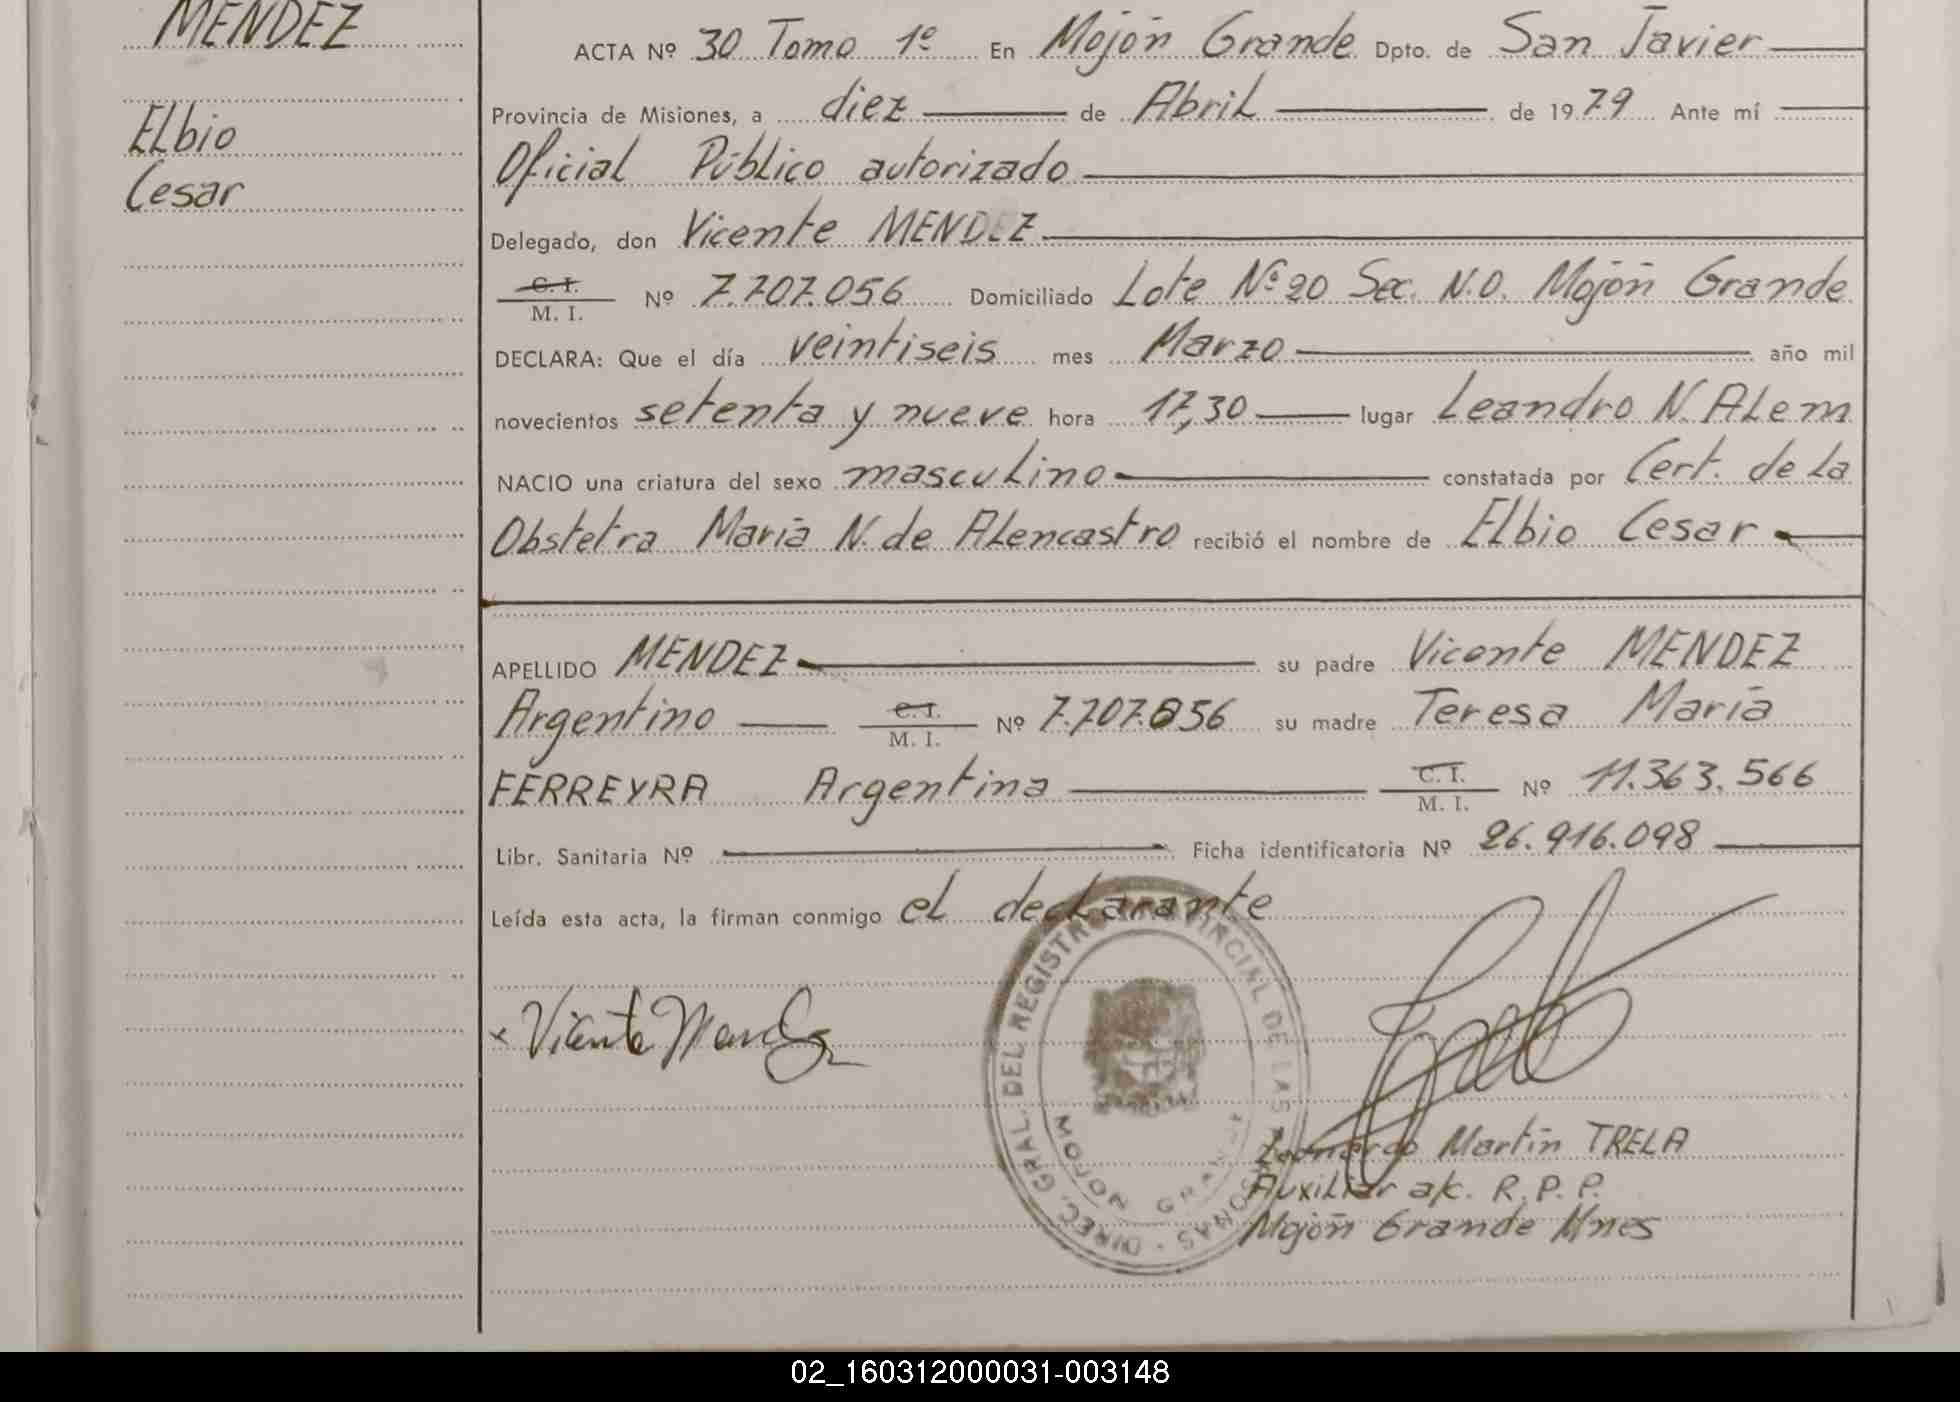 MENDEZ
Elbio
Cesar
ACTA Nº 30 Tomo 1º En Mojón Grande Dpto. de San Javier
Provincia de Misiones, a diez de Abril de 1979 Ante mí
Oficial Público autorizado
Delegado, don Vicente MENDEZ
C. I.
M. I. Nº 7.707.056 Domiciliado Lote Nº 20 Sec. N.O. Mojón Grande
DECLARA: Que el día veintiseis mes Marzo año mil
novecientos setenta y nueve hora 17,30 lugar Leandro N. Alem
NACIO una criatura del sexo masculino constatada por Cert. de la
Obstetra María N. de Alencastro recibió el nombre de Elbio Cesar
APELLIDO MENDEZ su padre Vicente MENDEZ
Argentino C. I. M. I. Nº 7.707.056 su madre Teresa María
FERREYRA Argentina C. I. M. I. Nº 11.363.566
Libr. Sanitaria Nº Ficha identificatoria Nº 26.916.098
Leída esta acta, la firman conmigo el declarante
x Vicente Mendez
DIREC. GRAL. DEL REGISTRO PROVINCIAL DE LAS PERSONAS
MOJON GRANDE
Leonardo Martín TRELA
Auxiliar a/c. R.P.P.
Mojón Grande Mnes
02_160312000031-003148